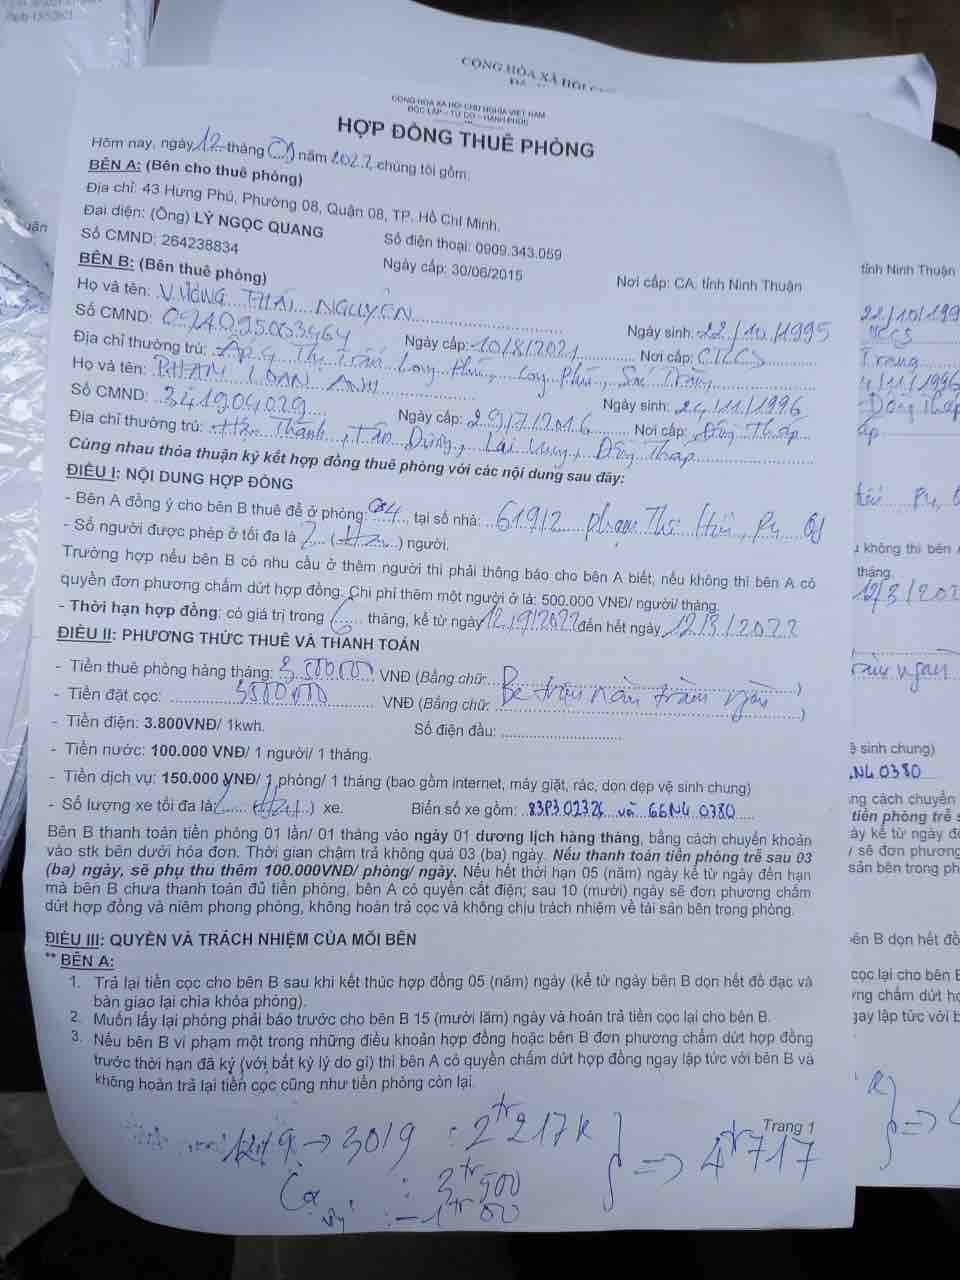 CỘNG HÒA XÃ HỘI
CỘNG HÒA XÃ HỘI CHỦ NGHĨA VIỆT NAM
ĐỘC LẬP - TỰ DO - HẠNH PHÚC
HỢP ĐỒNG THUÊ PHÒNG
Hôm nay, ngày 12 tháng 09 năm 2022, chúng tôi gồm:
BÊN A: (Bên cho thuê phòng)
Địa chỉ: 43 Hưng Phú, Phường 08, Quận 08, TP. Hồ Chí Minh.
Đại diện: (Ông) LÝ NGỌC QUANG Số điện thoại: 0909.343.059
Số CMND: 264238834 Ngày cấp: 30/06/2015 Nơi cấp: CA. tỉnh Ninh Thuận
BÊN B: (Bên thuê phòng)
Họ và tên: VƯƠNG THÁI NGUYÊN Ngày sinh: 22/10/1995
Số CMND: 094095003464 Ngày cấp: 10/8/2021 Nơi cấp: CTCCS
Địa chỉ thường trú: Ấp 9 Thị Trấn Long Phú, Long Phú, Sóc Trăng
Họ và tên: PHẠM LOAN ANH Ngày sinh: 24/11/1996
Số CMND: 341904029 Ngày cấp: 29/7/2016 Nơi cấp: Đồng Tháp
Địa chỉ thường trú: Tân Thành, Tân Dương, Lai Vung, Đồng Tháp
Cùng nhau thỏa thuận ký kết hợp đồng thuê phòng với các nội dung sau đây:
ĐIỀU I: NỘI DUNG HỢP ĐỒNG
- Bên A đồng ý cho bên B thuê để ở phòng: 04, tại số nhà: 619/2 Phạm Thế Hiển, P4, Q8
- Số người được phép ở tối đa là 2 (Hai) người.
Trường hợp nếu bên B có nhu cầu ở thêm người thì phải thông báo cho bên A biết, nếu không thì bên A có
quyền đơn phương chấm dứt hợp đồng. Chi phí thêm một người ở là: 500.000 VNĐ/ người/ tháng.
- Thời hạn hợp đồng: có giá trị trong 6 tháng, kể từ ngày 12/9/2022 đến hết ngày 12/3/2022
ĐIỀU II: PHƯƠNG THỨC THUÊ VÀ THANH TOÁN
- Tiền thuê phòng hàng tháng: 3.500.000 VNĐ (Bằng chữ: Ba triệu năm trăm ngàn)
- Tiền đặt cọc: 3500000 VNĐ (Bằng chữ: )
- Tiền điện: 3.800VNĐ/ 1kwh. Số điện đầu:
- Tiền nước: 100.000 VNĐ/ 1 người/ 1 tháng.
- Tiền dịch vụ: 150.000 VNĐ/ 1 phòng/ 1 tháng (bao gồm internet, máy giặt, rác, dọn dẹp vệ sinh chung)
- Số lượng xe tối đa là: 2 (Hai) xe. Biển số xe gồm: 83P3 02326 và 66N4 0380
Bên B thanh toán tiền phòng 01 lần/ 01 tháng vào ngày 01 dương lịch hàng tháng, bằng cách chuyển khoản
vào stk bên dưới hóa đơn. Thời gian chậm trả không quá 03 (ba) ngày. Nếu thanh toán tiền phòng trễ sau 03
(ba) ngày, sẽ phụ thu thêm 100.000VNĐ/ phòng/ ngày. Nếu hết thời hạn 05 (năm) ngày kể từ ngày đến hạn
mà bên B chưa thanh toán đủ tiền phòng, bên A có quyền cắt điện; sau 10 (mười) ngày sẽ đơn phương chấm
dứt hợp đồng và niêm phong phòng, không hoàn trả cọc và không chịu trách nhiệm về tài sản bên trong phòng.
ĐIỀU III: QUYỀN VÀ TRÁCH NHIỆM CỦA MỖI BÊN
** BÊN A:
1. Trả lại tiền cọc cho bên B sau khi kết thúc hợp đồng 05 (năm) ngày (kể từ ngày bên B dọn hết đồ đạc và
bàn giao lại chìa khóa phòng).
2. Muốn lấy lại phòng phải báo trước cho bên B 15 (mười lăm) ngày và hoàn trả tiền cọc lại cho bên B.
3. Nếu bên B vi phạm một trong những điều khoản hợp đồng hoặc bên B đơn phương chấm dứt hợp đồng
trước thời hạn đã ký (với bất kỳ lý do gì) thì bên A có quyền chấm dứt hợp đồng ngay lập tức với bên B và
không hoàn trả lại tiền cọc cũng như tiền phòng còn lại.
Trang 1
12/9 → 30/9 : 2tr217k } => 4tr717
Cọc : 3tr500
: - 1tr00
tỉnh Ninh Thuận
22/10/199
Trăng
4/11/1996
Đồng Tháp
u không thì bên A
tháng.
12/3/202
ệ sinh chung)
N4 0380
ng cách chuyển
tiền phòng trễ s
ày kể từ ngày đế
y sẽ đơn phương
sản bên trong ph
bên B dọn hết đồ
cọc lại cho bên B
ng chấm dứt hợ
gay lập tức với b
k } =>